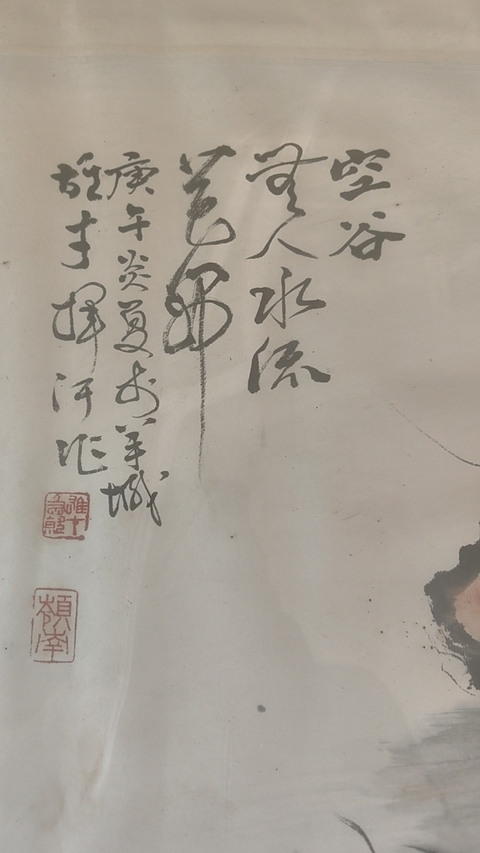 空谷
無人水流
花開
庚午炎夏於羊城
雄才揮汗作
嶺南